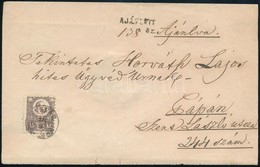 AJÁNLOTT
138 sz. Ajánlva
Tekintetes Horváth Lajos
hites Ügyvéd Úrnak
Pápán
Szent László utcza
244 szám.